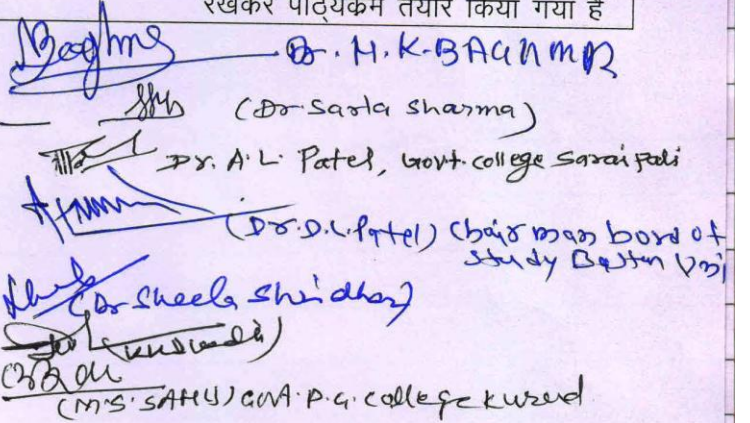 रखकर पाठ्यक्रम तैयार किया गया है
Dr. H. K. BAGHMAR
(Dr. Sarla Sharma)
Dr. A. L. Patel, Govt. college Saraipali
(Dr. D. L. Patel) Chairman bord of
study Bastar Uni
(Dr Sheela Shridhar)
(M.S. SAHU) Govt. P.G. College Kurud